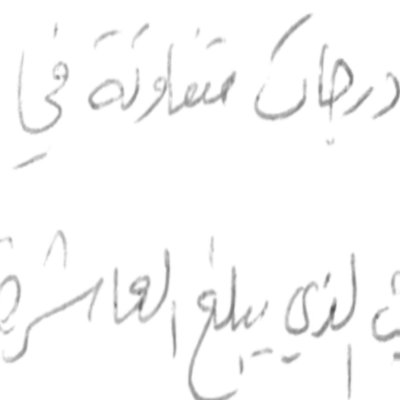 درجات متفاوتة في
الذي يبلغ العاشرة